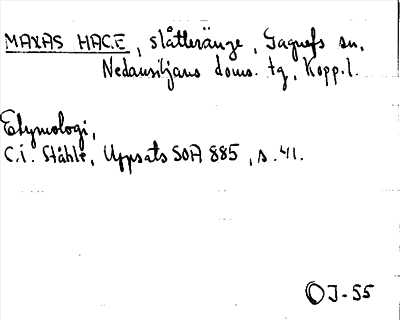 MAXAS HAGE, slåtteränge, Gagnefs sn.
Nedansiljans doms. tg, Kopp. l.
Etymologi,
C.I. Ståhle, Uppsats SOA 885, s. 41.
OJ-55